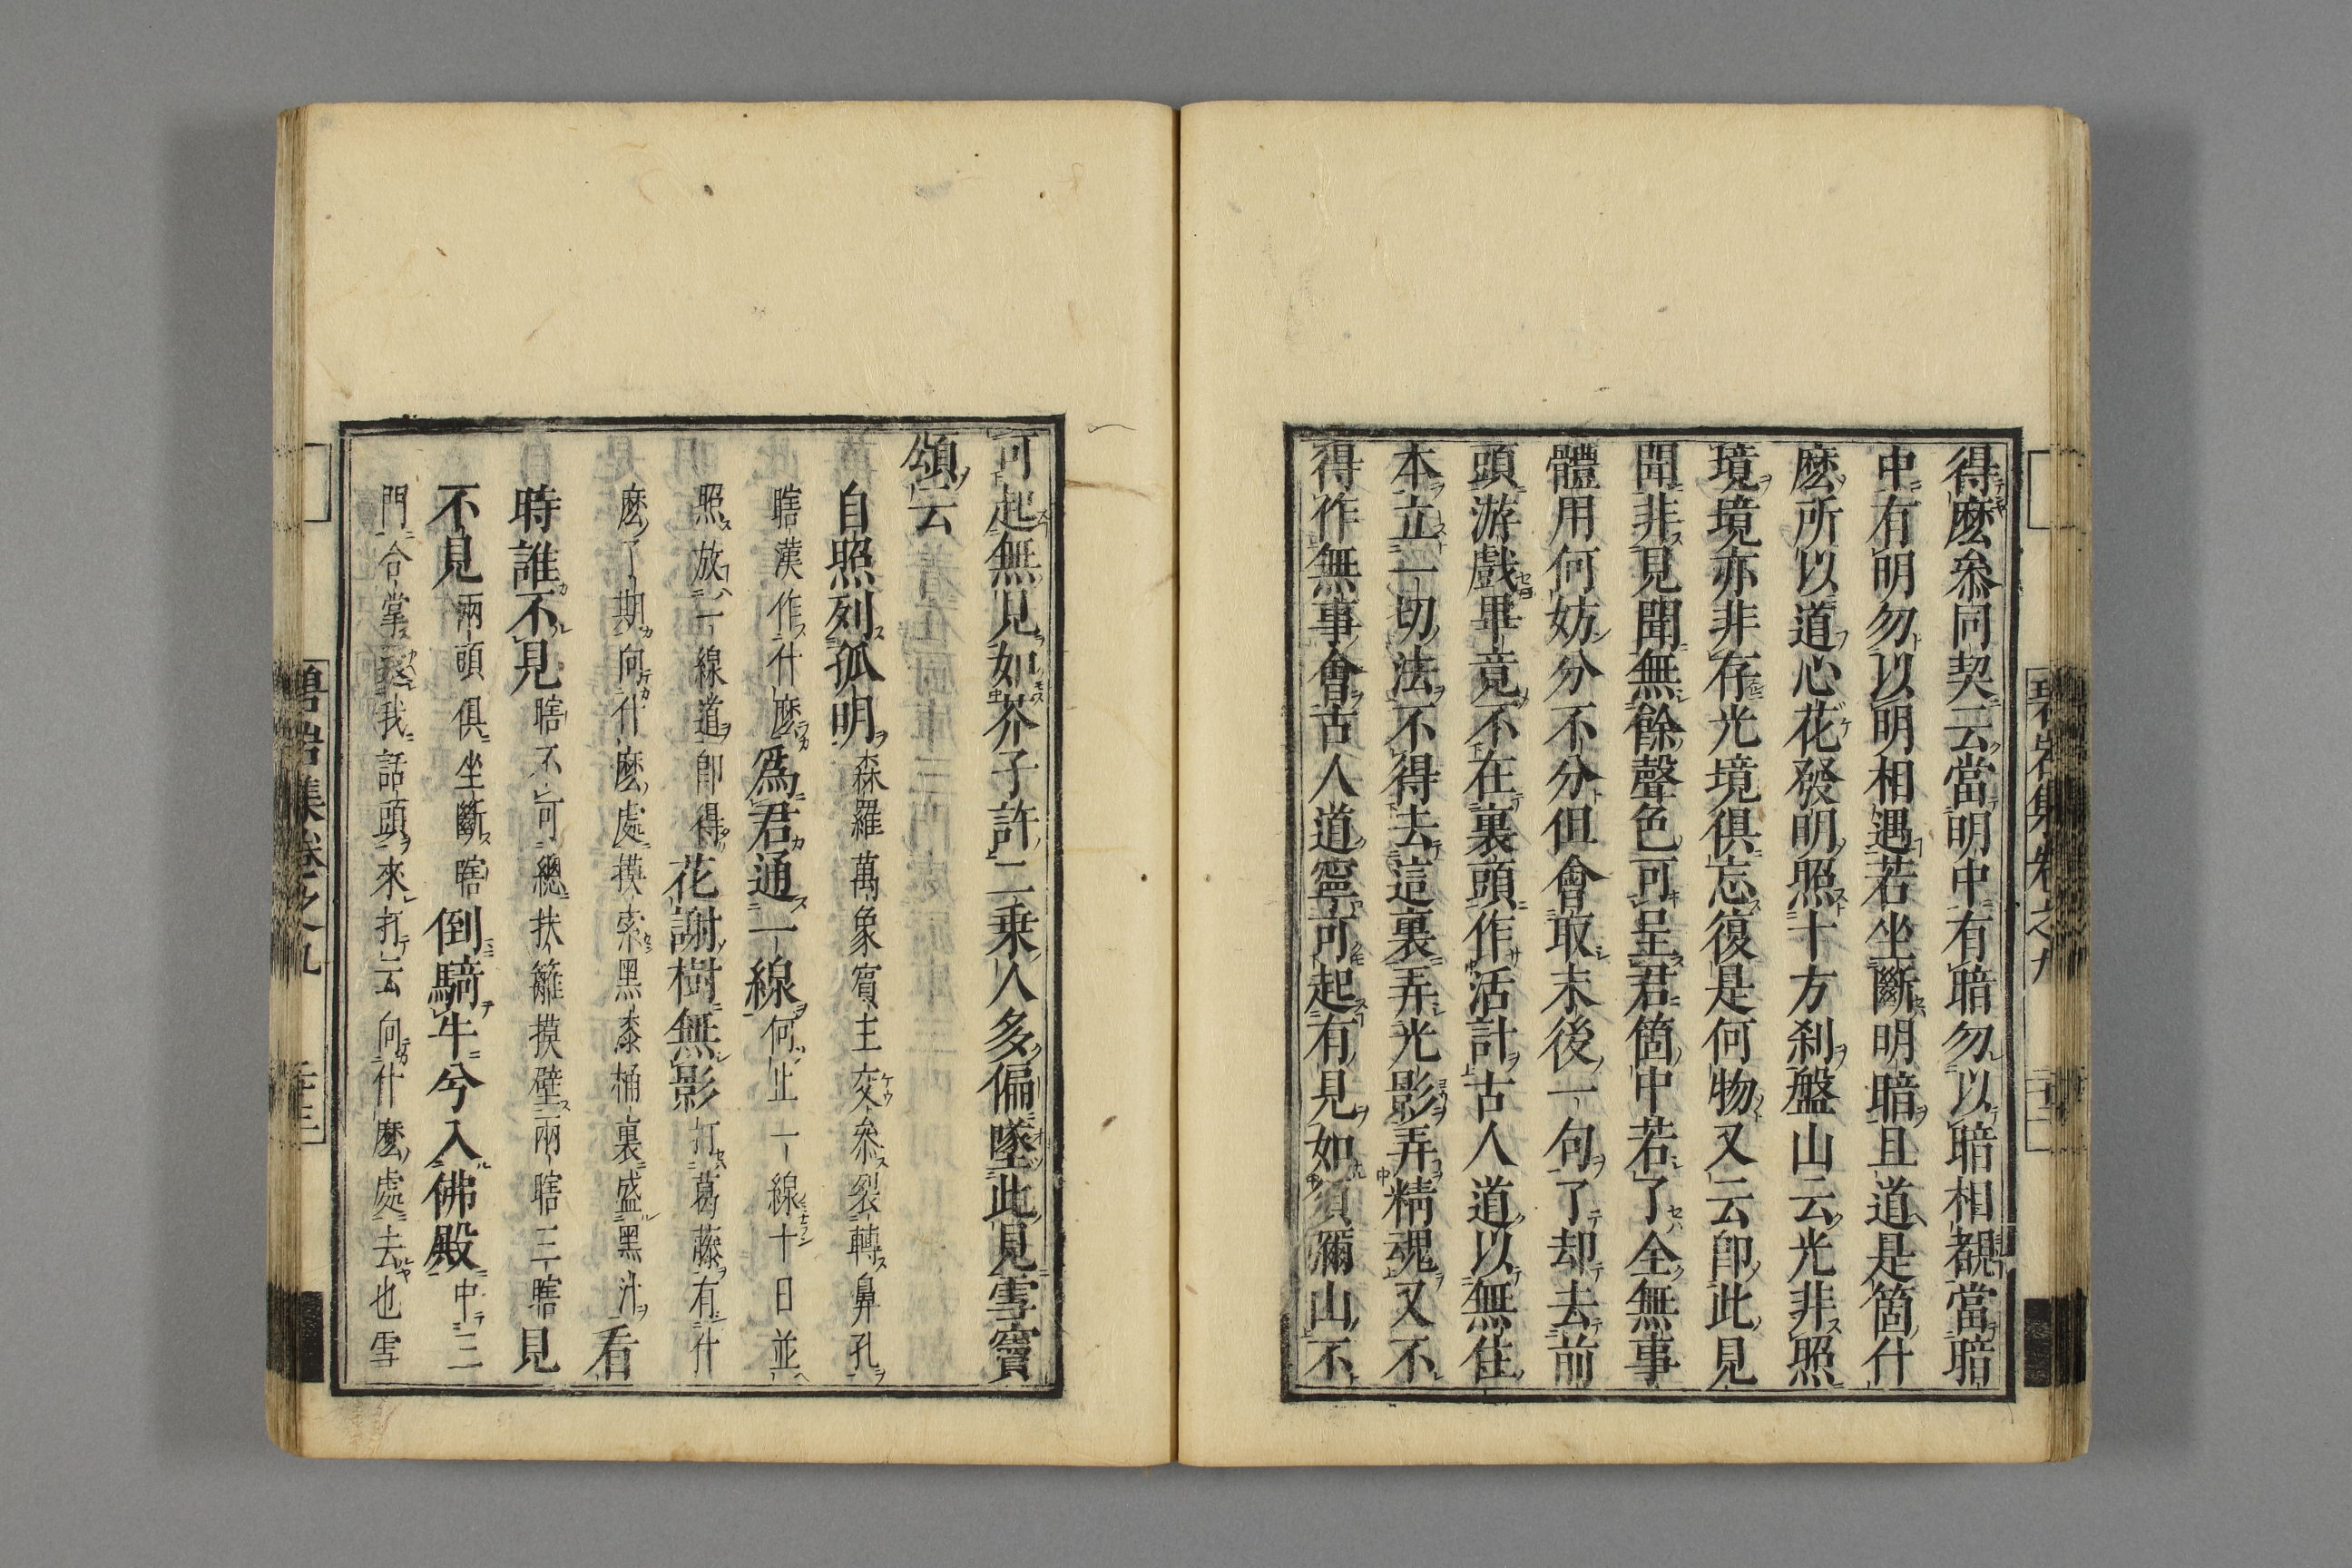 得麽叅同契云當明中有暗勿以暗相覩當暗
中有明勿以明相遇若坐斷明暗且道是箇什
麽所以道心花發明照十方刹盤山云光非照
境境亦非存光境俱忘復是何物又云卽此見
聞非見聞無餘聲色可呈君箇中若了全無事
體用何妨分不分但會取末後一句了却去前
頭游戲畢竟不在裏頭作活計古人道以無住
本立一切法不得去這裏弄光影弄精魂又不
得作無事會古人道寧可起有見如須彌山不
可起無見如芥子許二乗人多偏墜此見雪竇
頌云
自照列孤明森羅萬象賓主交叅裂轉鼻孔
瞎漢作什麽爲君通一線何止一線十日並
照放一線道卽得花謝樹無影打葛藤有什
麽了期向什麽處摸索黑漆桶裏盛黑汁看
時誰不見瞎不可總扶籬摸壁兩瞎三瞎見
不見兩頭俱坐斷瞎倒騎牛兮入佛殿中三
門合掌還我話頭來打云向什麽處去也雪
碧岩集卷之九